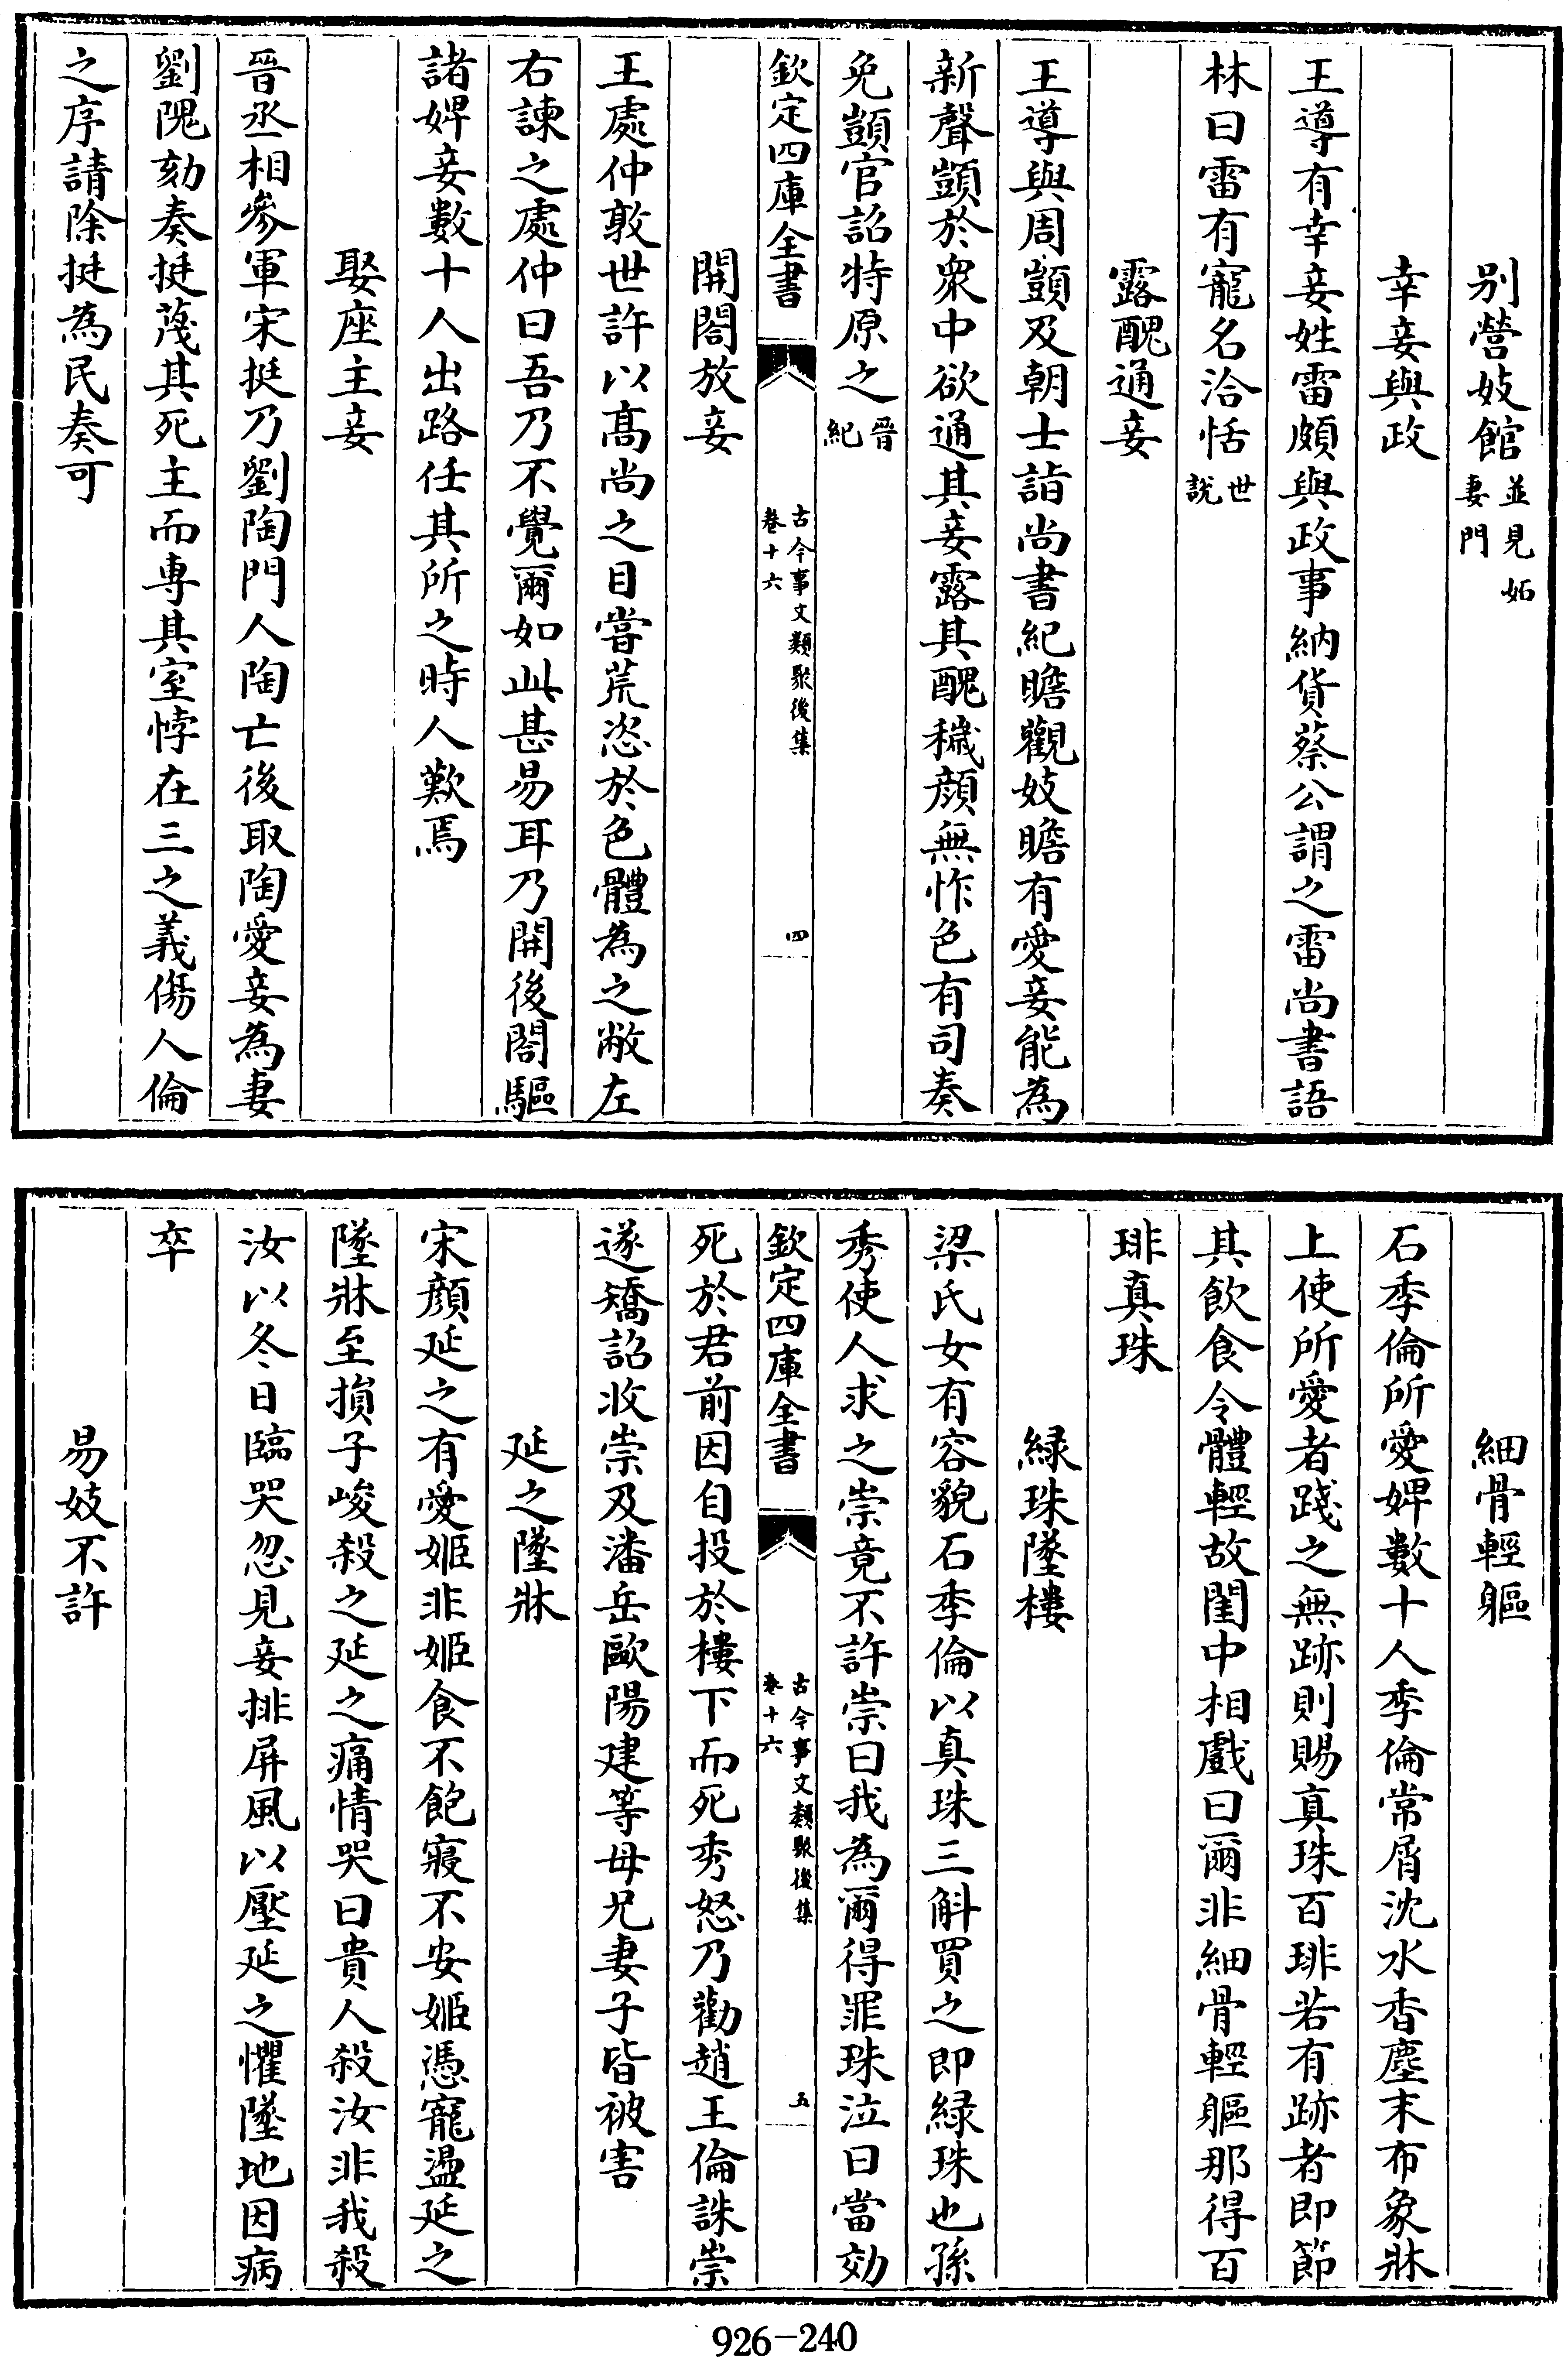 别營妓館並見妬妻門
幸妾與政
王導有幸妾姓雷頗與政事納貨蔡公謂之雷尚書語
林曰雷有寵名洽恬世說
露醜通妾
王導與周顗及朝士詣尚書紀瞻觀妓瞻有愛妾能為
新聲顗於衆中欲通其妾露其醜穢顔無怍色有司奏
免顗官詔特原之晉紀
欽定四庫全書
古今事文類聚後集
卷十六
四
開閤放妾
王處仲敦世許以髙尚之目嘗荒恣於色體為之敝左
右諫之處仲曰吾乃不覺爾如此甚易耳乃開後閤驅
諸婢妾數十人出路任其所之時人歎焉
娶座主妾
晉丞相參軍宋挺乃劉陶門人陶亡後取陶愛妾為妻
劉隗劾奏挺蔑其死主而専其室悖在三之義傷人倫
之序請除挺為民奏可
細骨輕軀
石季倫所愛婢數十人季倫常屑沈水香塵末布象牀
上使所愛者踐之無跡則賜真珠百琲若有跡者即節
其飲食令體輕故閨中相戲曰爾非細骨輕軀那得百
琲真珠
緑珠墜樓
梁氏女有容貌石季倫以真珠三斛買之即緑珠也孫
秀使人求之崇竟不許崇曰我為爾得罪珠泣曰當効
欽定四庫全書
古今事文類聚後集
卷十六
五
死於君前因自投於樓下而死秀怒乃勸趙王倫誅崇
遂矯詔收崇及潘岳歐陽建等母兄妻子皆被害
延之墜牀
宋顔延之有愛姬非姬食不飽寢不安姬憑寵盪延之
墜牀至損子峻殺之延之痛情哭曰貴人殺汝非我殺
汝以冬日臨哭忽見妾排屏風以壓延之懼墜地因病
卒
易妓不許
926-240